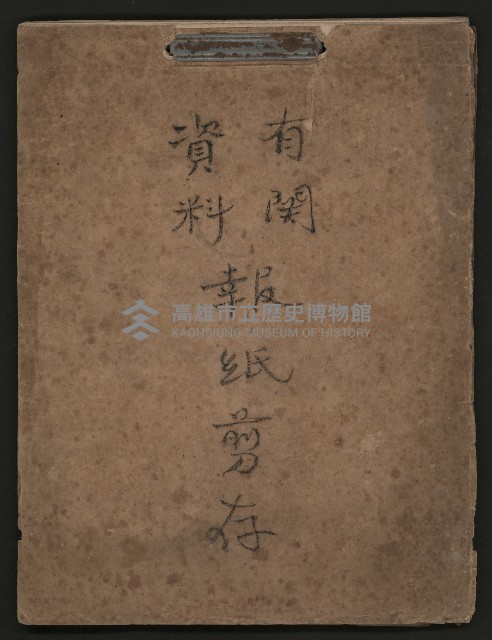 有関
資料
報紙剪存
高雄市立歷史博物館
KAOHSIUNG MUSEUM OF HISTORY